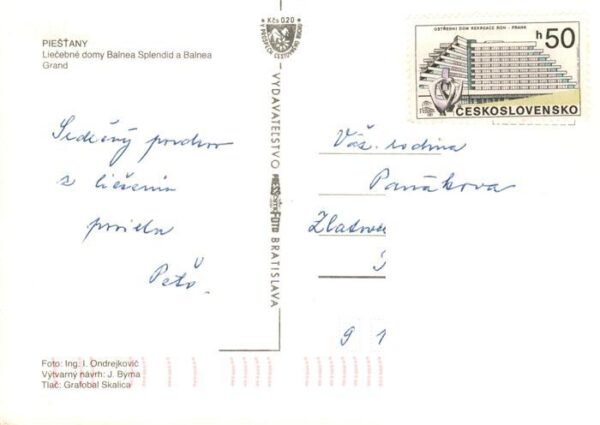 PIEŠŤANY
Liečebné domy Balnea Splendid a Balnea
Grand
Kčs 0,20
VYDAVATEĽSTVO
BRATISLAVA
Srdečný pozdrav
z liečenia
posiela
Peťo.
ÚSTŘEDNÍ DŮM REKREACE ROH - PRAHA
h 50
ČESKOSLOVENSKO
Váž. rodina
Panákova
Zlatov
9 1
Foto: Ing. I. Ondrejkovič
Výtvarný návrh: J. Býma
Tlač: Grafobal Skalica